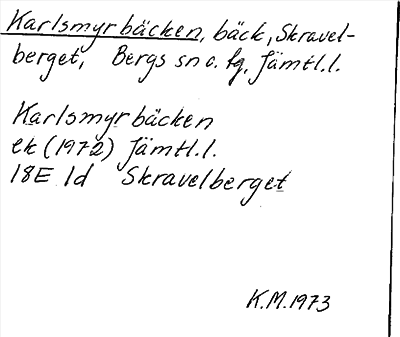 Karlsmyrbäcken, bäck, Skravel-
berget, Bergs sn o. tg, Jämtl.l.
Karlsmyrbäcken
ek (1972) Jämtl.l.
18E 1d Skravelberget
K.M. 1973